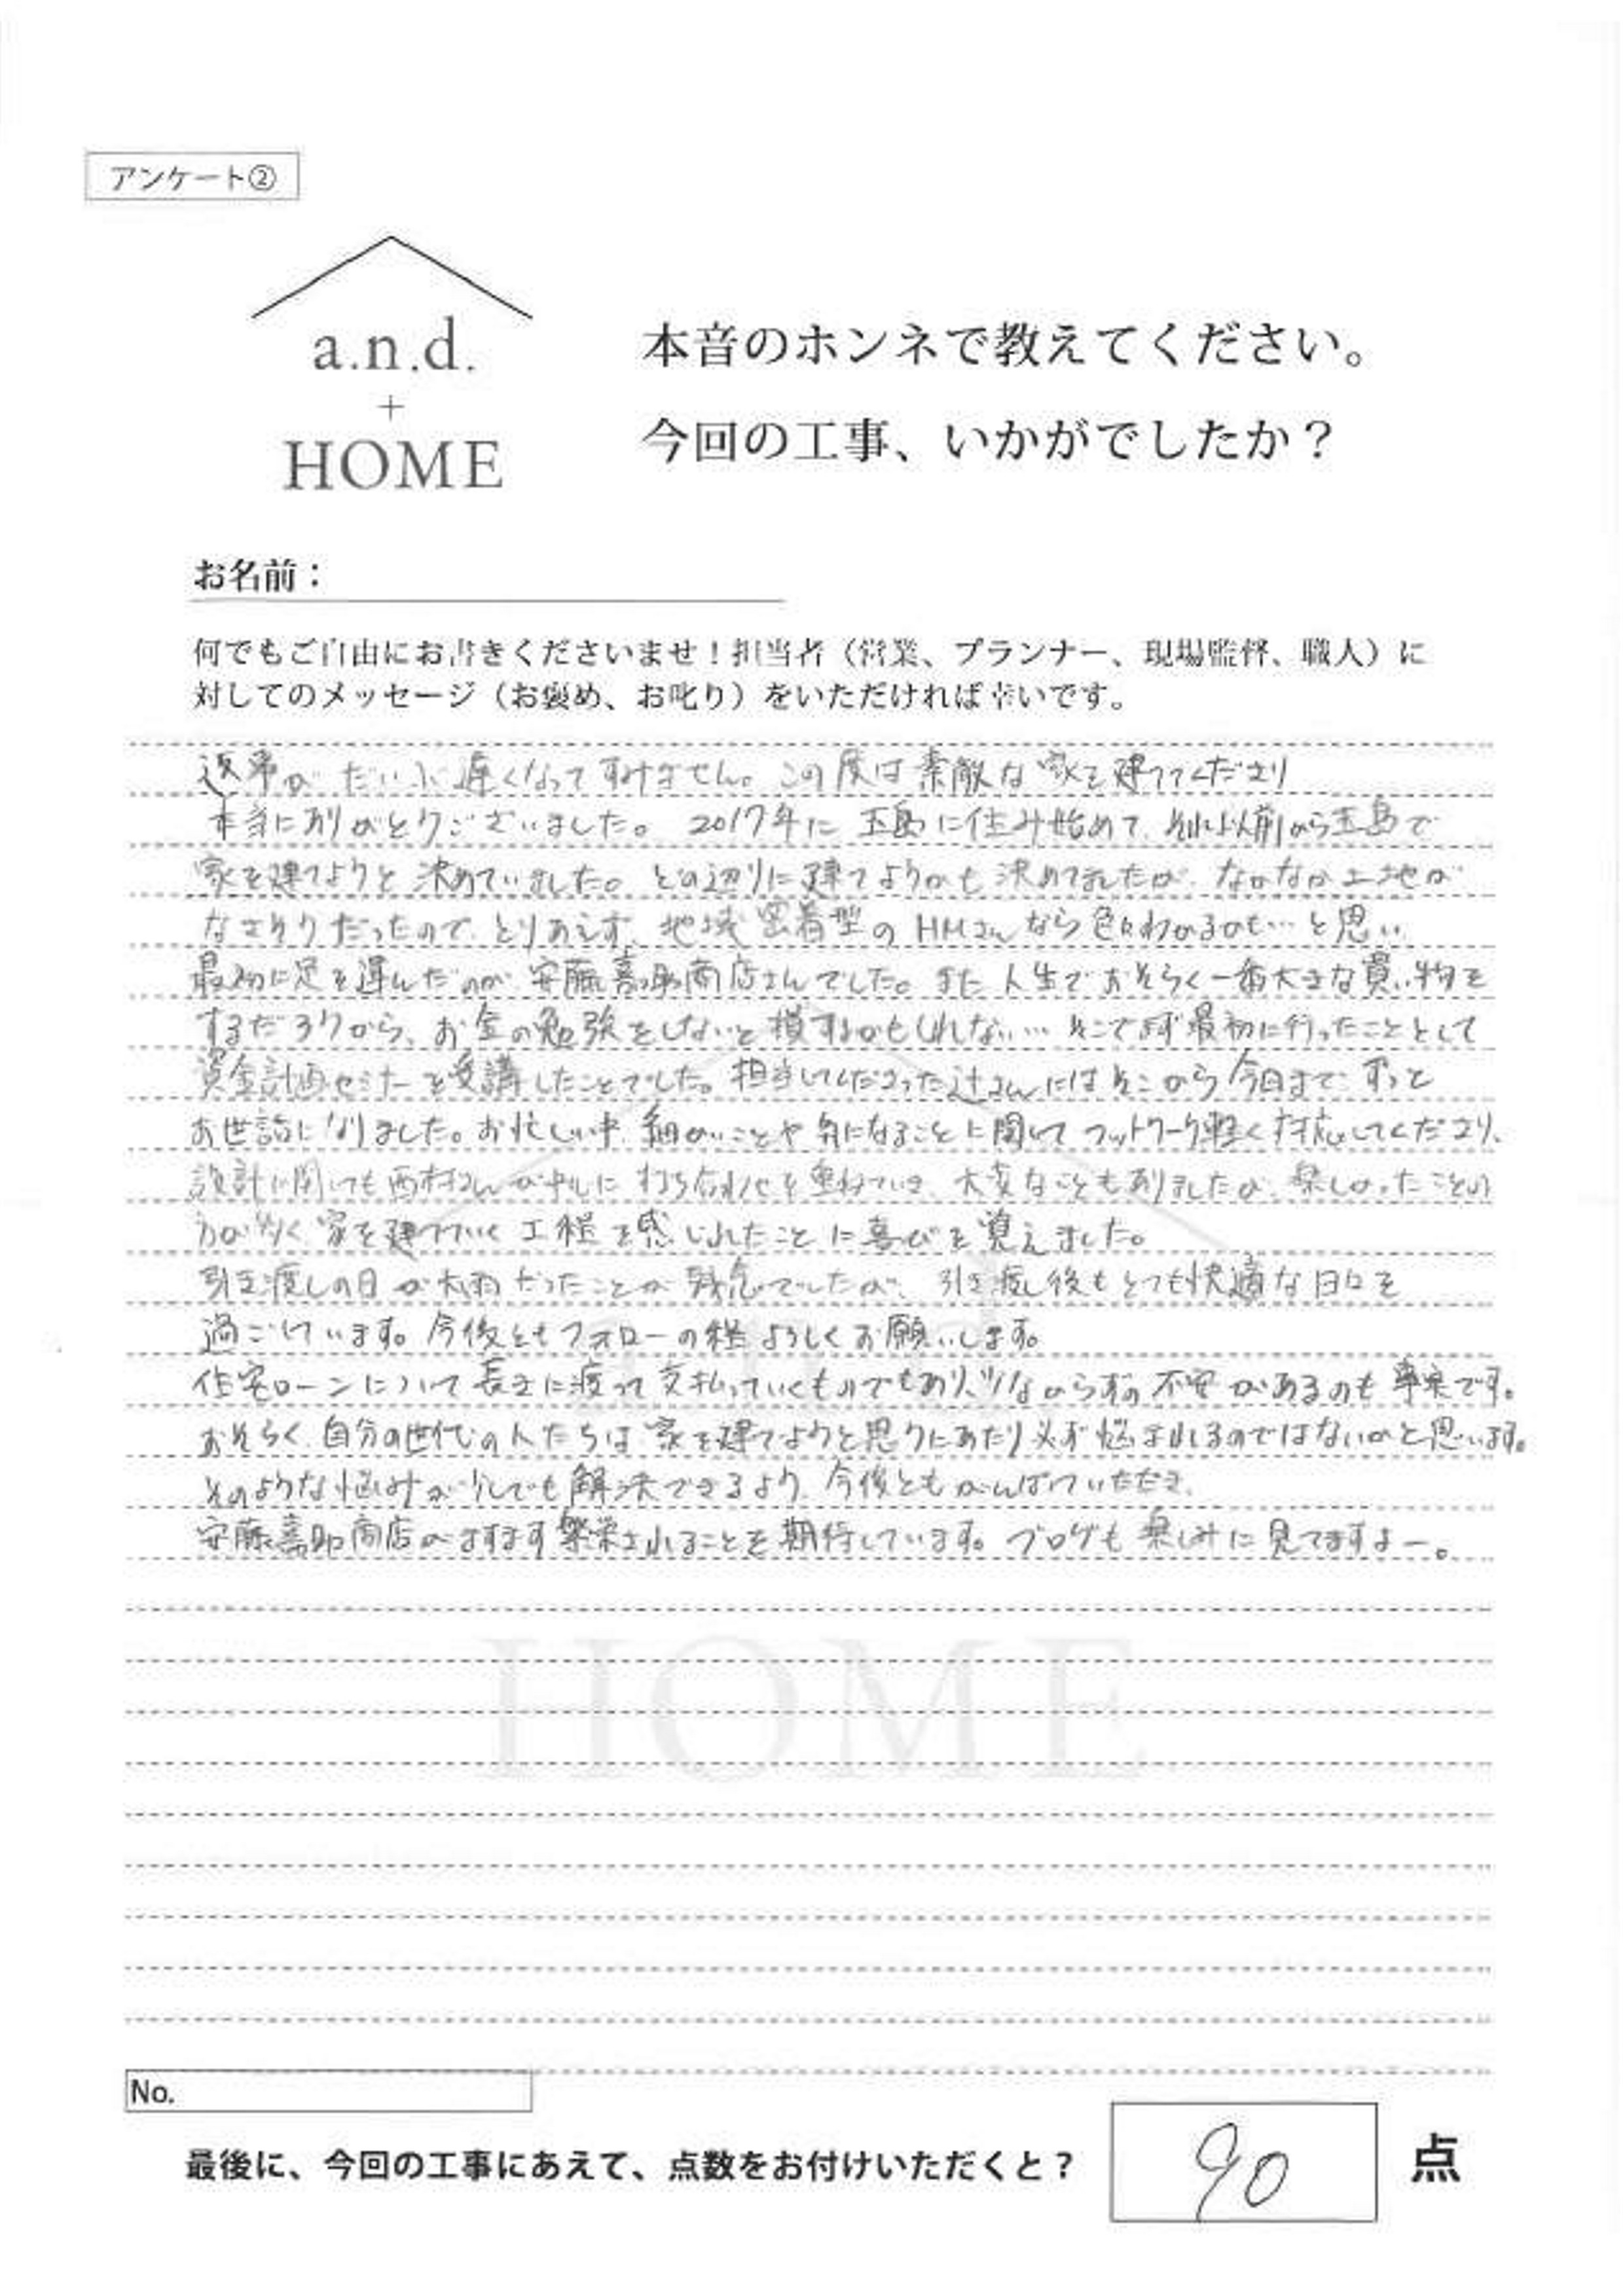 アンケート②
a.n.d.
+
HOME
本音のホンネで教えてください。
今回の工事、いかがでしたか？
お名前：
何でもご自由にお書きくださいませ！担当者（営業、プランナー、現場監督、職人）に
対してのメッセージ（お褒め、お叱り）をいただければ幸いです。
返事が だいぶ遅くなってすみません。この度は素敵な家を建ててくださり
本当にありがとうございました。2017年に玉島に住み始めて、それ以前から玉島で
家を建てようと決めていました。どの辺りに建てようかも決めてましたが、なかなか土地が
なさそうだったので、とりあえず、地域密着型のHMさんなら色々わかるかも…と思い、
最初に足を運んだのが安藤嘉助商店さんでした。また人生でおそらく一番大きな買い物を
するだろうから、お金の勉強をしないと損するかもしれない… そこでまず最初に行ったこととして
資金計画セミナーを受講したことでした。担当してくださった辻さんにはそこから今日までずっと
お世話になりました。お忙しい中、細かいことや気になることに関してフットワーク軽く対応してくださり、
設計に関しても西村さんが中心に打ち合わせを重ねていき、大変なこともありましたが、楽しかったことの
方が多く家を建てていく工程を感じれたことに喜びを覚えました。
引き渡しの日が大雨だったことが残念でしたが、引き渡し後もとても快適な日々を
過ごしています。今後ともフォローの程よろしくお願いします。
住宅ローンについて長きに渡って支払っていくものでもあり、少なからずの不安があるのも事実です。
おそらく、自分の世代の人たちは家を建てようと思うにあたり必ず悩まれるのではないかと思います。
そのような悩みが少しでも解決できるよう、今後ともがんばっていただき、
安藤嘉助商店がますます繁栄されることを期待しています。ブログも楽しみに見てますよー。
HOME
No.
最後に、今回の工事にあえて、点数をお付けいただくと？
90
点